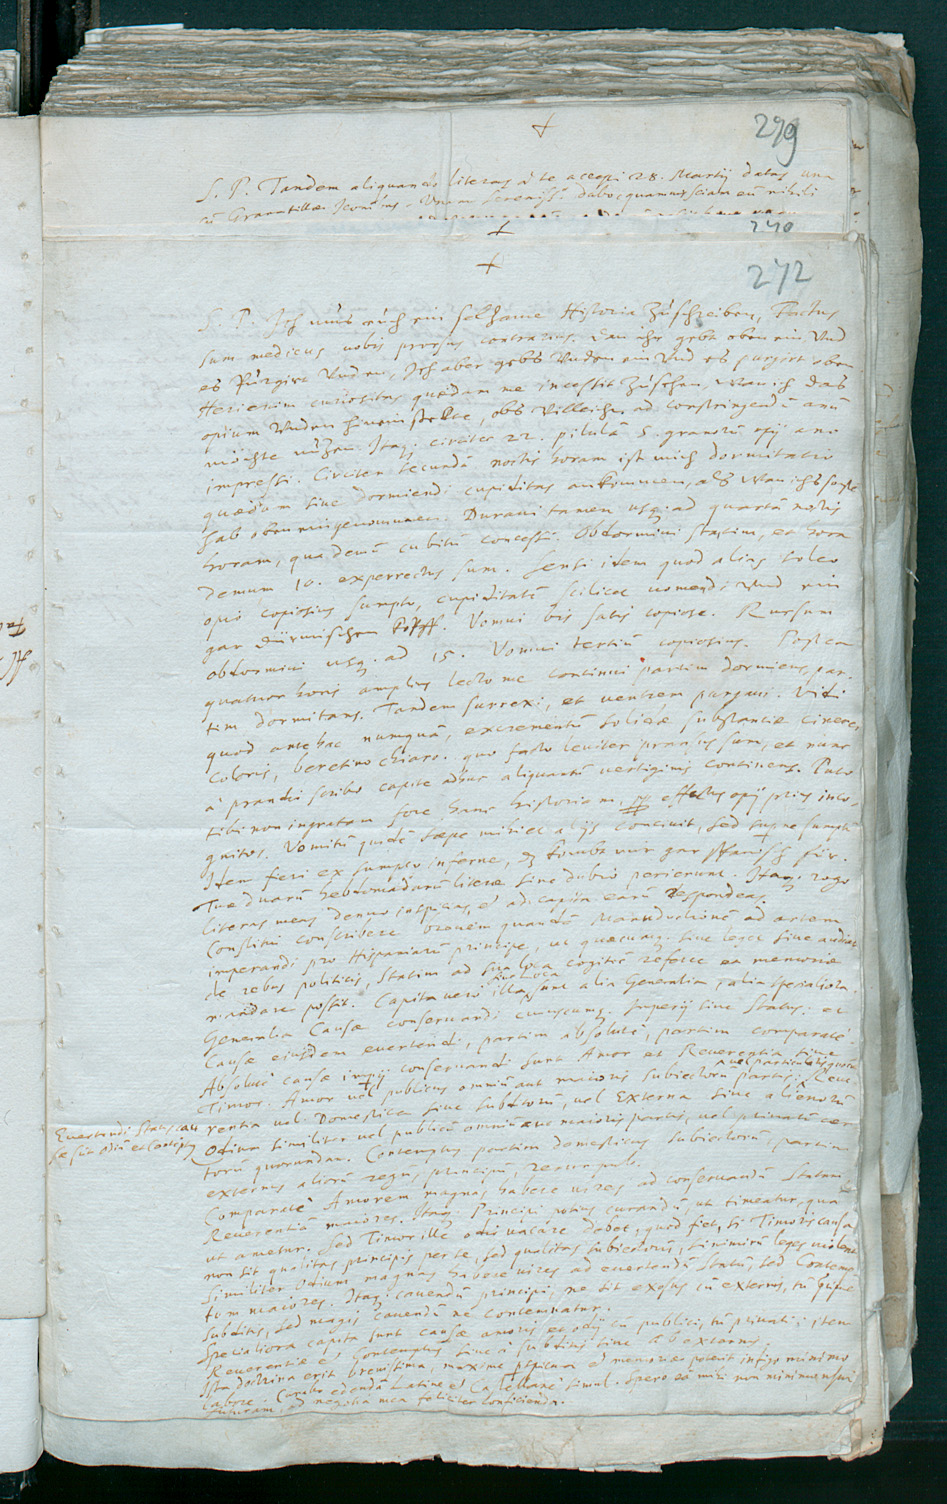 +
299
S. P. Tandem aliquando literas à te accepi 28. Martij datas una
cū Granvillae Iconibus.
+
240
+
272
S. P. Ich mus euch ein selzame Historia zuschreiben, Factus
sum medicus vobis prorsus contrarius. Dan ihr gebt oben ein Und
es Purgirt Unden, Ich aber gebs Unden ein Und es purgirt oben
Heri enim curiositas quaedam me incessit zusehen, Wan ich das
opium Unden hinein steckte, obs Villeicht ad constringendū anū
möchte nüzen. Itaq. circiter 22. pilulā 5. granorū opij ano
impressi. Circiter secundā noctis horam ist mich dormitatio
quaedam sive dormiendi cupiditas ankommen, als Wan ichs sonst
hab oben eingenommen. Duravi tamen usq. ad quartā noctis
horam, qua demū cubitū concessi. Obdormivi statim, et hora
demum 10. experrectus sum. Sensi idem quod alias soleo
opio copiosius sumpto, cupiditatē scilicet vomendi Und ein
gar dürmischen Kopff. Vomui bis satis copiose. Rursum
obdormivi usq. ad 15. Vomui tertiū copiosius. Postea
quatuor horis amplius lecto me continui partim dormiens, par-
tim dormitans. Tandem surrexi, et ventrem purgavi. Vidi
quod antehac numquā, excrementū solidae substantiae cinerei
coloris, beretino chiaro. quo facto leviter pransus sum, et nunc
à prandio scribo capite adhuc aliquantū vertiginis continens. Puto
tibi non ingratam fore hanc historiam, effectus opij prius inco-
gnitos. Vomitū quidē saepe mihi et alijs concivit, sed supne sumptū
Idem fieri ex sumpto inferne, dz kombt mir gar spanisch für.
Tuae duarū hebdomadarū literae sine dubio perierunt. Itaq. rogo
literas meas denuo inspicias, et ad capita earū respondeas.
Constitui conscribere brevem quandā Manuductionē ad artem
imperandi pro Hispaniarū principe, ut quaecunq. sive legat sive audiat
de rebus politicis, statim ad sua loca cogitet referre ea memoriae
mandare possit. Capita vero illa sive loca sunt alia Generalia, alia specialiora.
Generalia Causae conservandi cuiuscunq. Imperij sive Status. et
Causae eiusdem evertendi, partim absolutè, partim comparatè.
Absolutè causae impij conservandi sunt Amor et Reverentia sive
Timor. Amor vel publicus omniū aut maioris subiectorū partis, vel particularis quorū. Reve-
rentia vel Domestica sive subditorū, vel Externa sive alienorū
Evertendi Status cau-
sae sūt odiū et Contēptus
Odium similiter vel publicū omniū aut maioris partis, vel privatū cer
torū quorundam. Contemptus partim domesticus subiectorū, partim
externus aliorū regū, principū, rerumpub.
Comparatè Amorem magnas habere vires ad conservandū Statum
Reverentiā maiores. Itaq. Principi potius curandū, ut timeatur, quā
ut ametur. Sed Timor ille odio vacare debet, quod fiet, si Timoris causa
non sit qualitas principis per se, sed qualitas subiectorū, si nimirū leges violent
Similiter Odium magnas habere vires ad evertendū Statū, sed Contemp
tum maiores. Itaq. cavendū principi, ne sit exosus cū externis, tū
subditis, sed magis cavendū ne contemnatur.
Specialiora capita sunt causae amoris et odij tū publici, tū privati: item
Reverentiae et Contemptus sive à subditis sive ab externis.
Ista doctrina erit brevissima, maxime perspicua et memoriae poterit infigi minimo
labore. Curabo edendā Latine et Castellane simul. Spero eā mihi non minimo usui
futuram ad negotia mea feliciter conficienda.